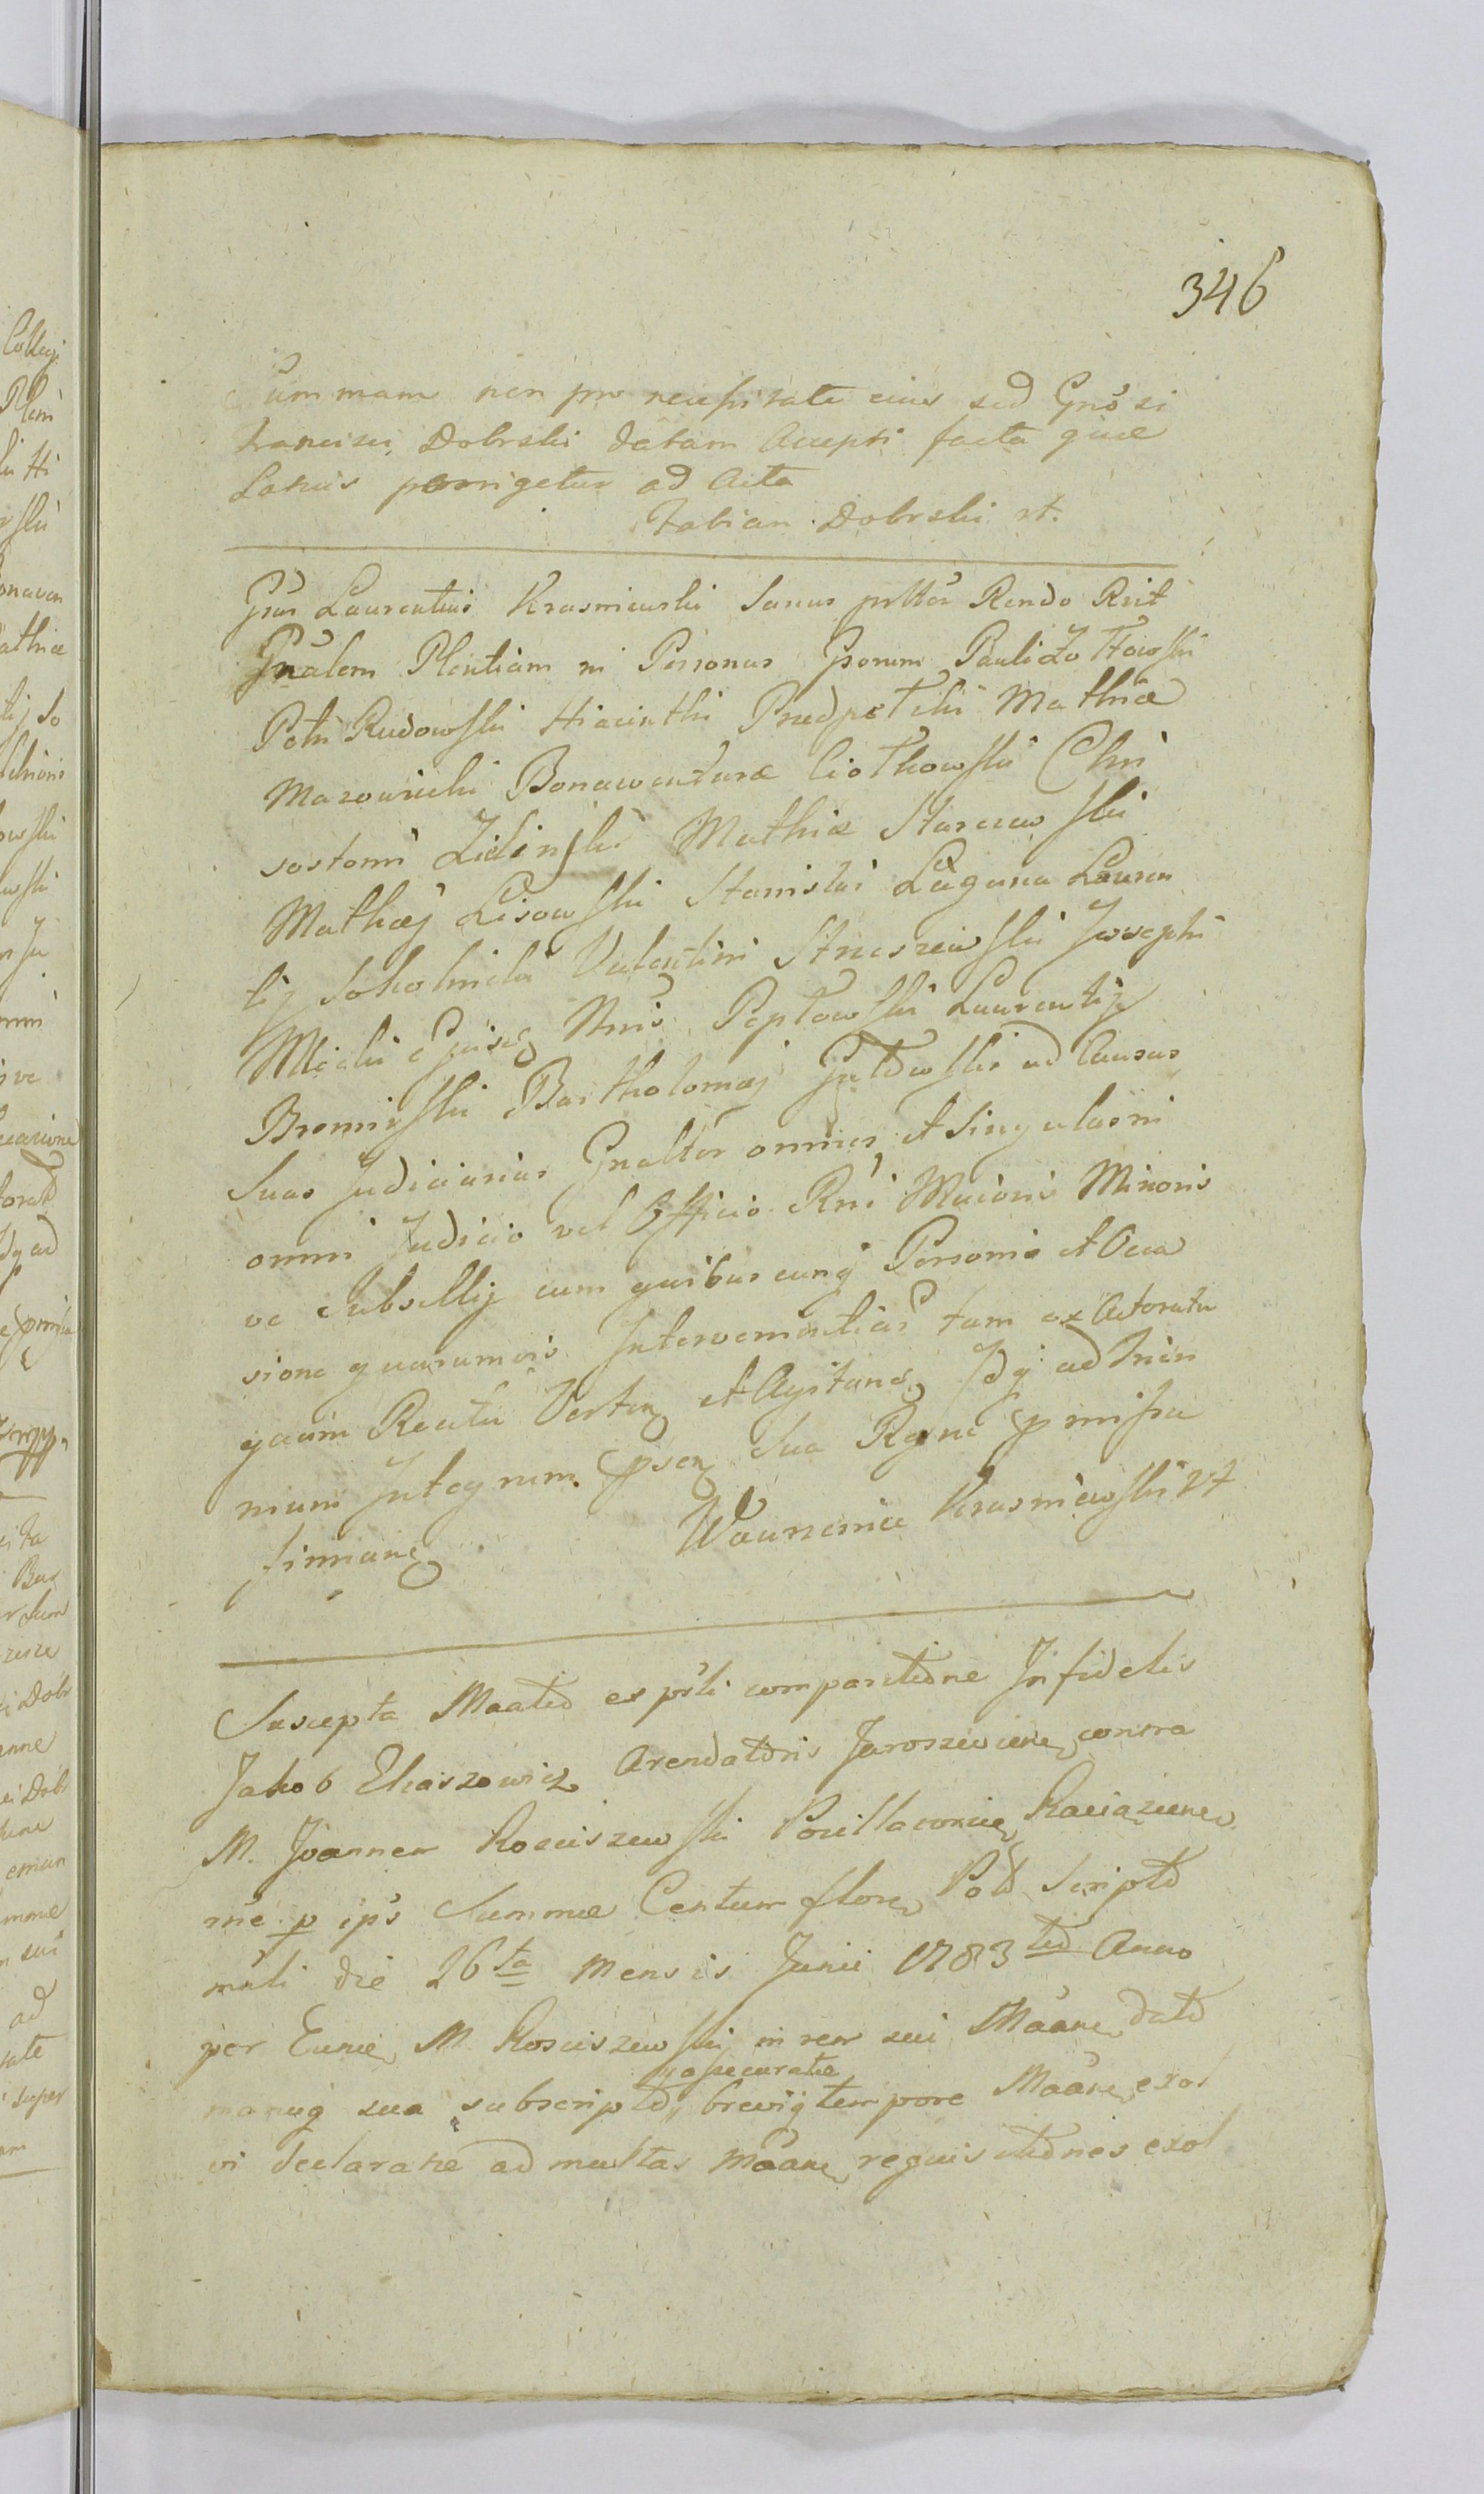 346
Summam non pro necessitate eius sed Gnosi
Francisci Dobrski datam Accepti facta quae
Latius porrigetur ad Acta
Fabian Dobrski rt.
Gsus Laurentius Krasniewski Sanus prttèr Rendo Rsit
Gnalem Plentiam in Personas Gsorum Pauli Żołtowski
Petri Rudowski Hiacinthi Przedpełski Mathiæ
Mazowiecki Bonawenturæ Ciołkowski Chri
sostomi Zieliński Mathiæ Starczewski
Mathæj Lisowski Stanislai Łaguna Lauren
tij Sokolnicki Valentini Strzeszewski Josephi
Micki Epīsq Nris Pepłowski Laurentij
Bromirski Bartholomæj Gułdowski ad Causas
Suas Judiciarias Gnaltèr omnies et Singulas in
omni Judicio vel Officio Rni Maioris Minoris
ve Subsellij cum quibuscunq Personis et Occa
sione quarumvis Interveniñtias tam ex Actoratu
quam Reatu Verten et Agitand Idq ad trien
nium Integrum psen Sua Rgne pmissa
firmand
Wawrzeniec Krasniewski rt
Suscepta Maatio ex psli comparitione Infidelis
Jakob Eliaszowicz Arendatoris Jaroszewicen contra
M. Joannem Rosciszewski Pocillatorem Raciązicen
rñe p ips Summæ Centum floren Pol Scripto
mnli die 26ta Mensis Junii 1783tio Anno
per Eunde M. Rosciszewski in rem sui Maane dato
manuq sua subscripto assecuratæ breviq tempore Maane exol
vi declaratæ ad multas Maane requisitiones exol